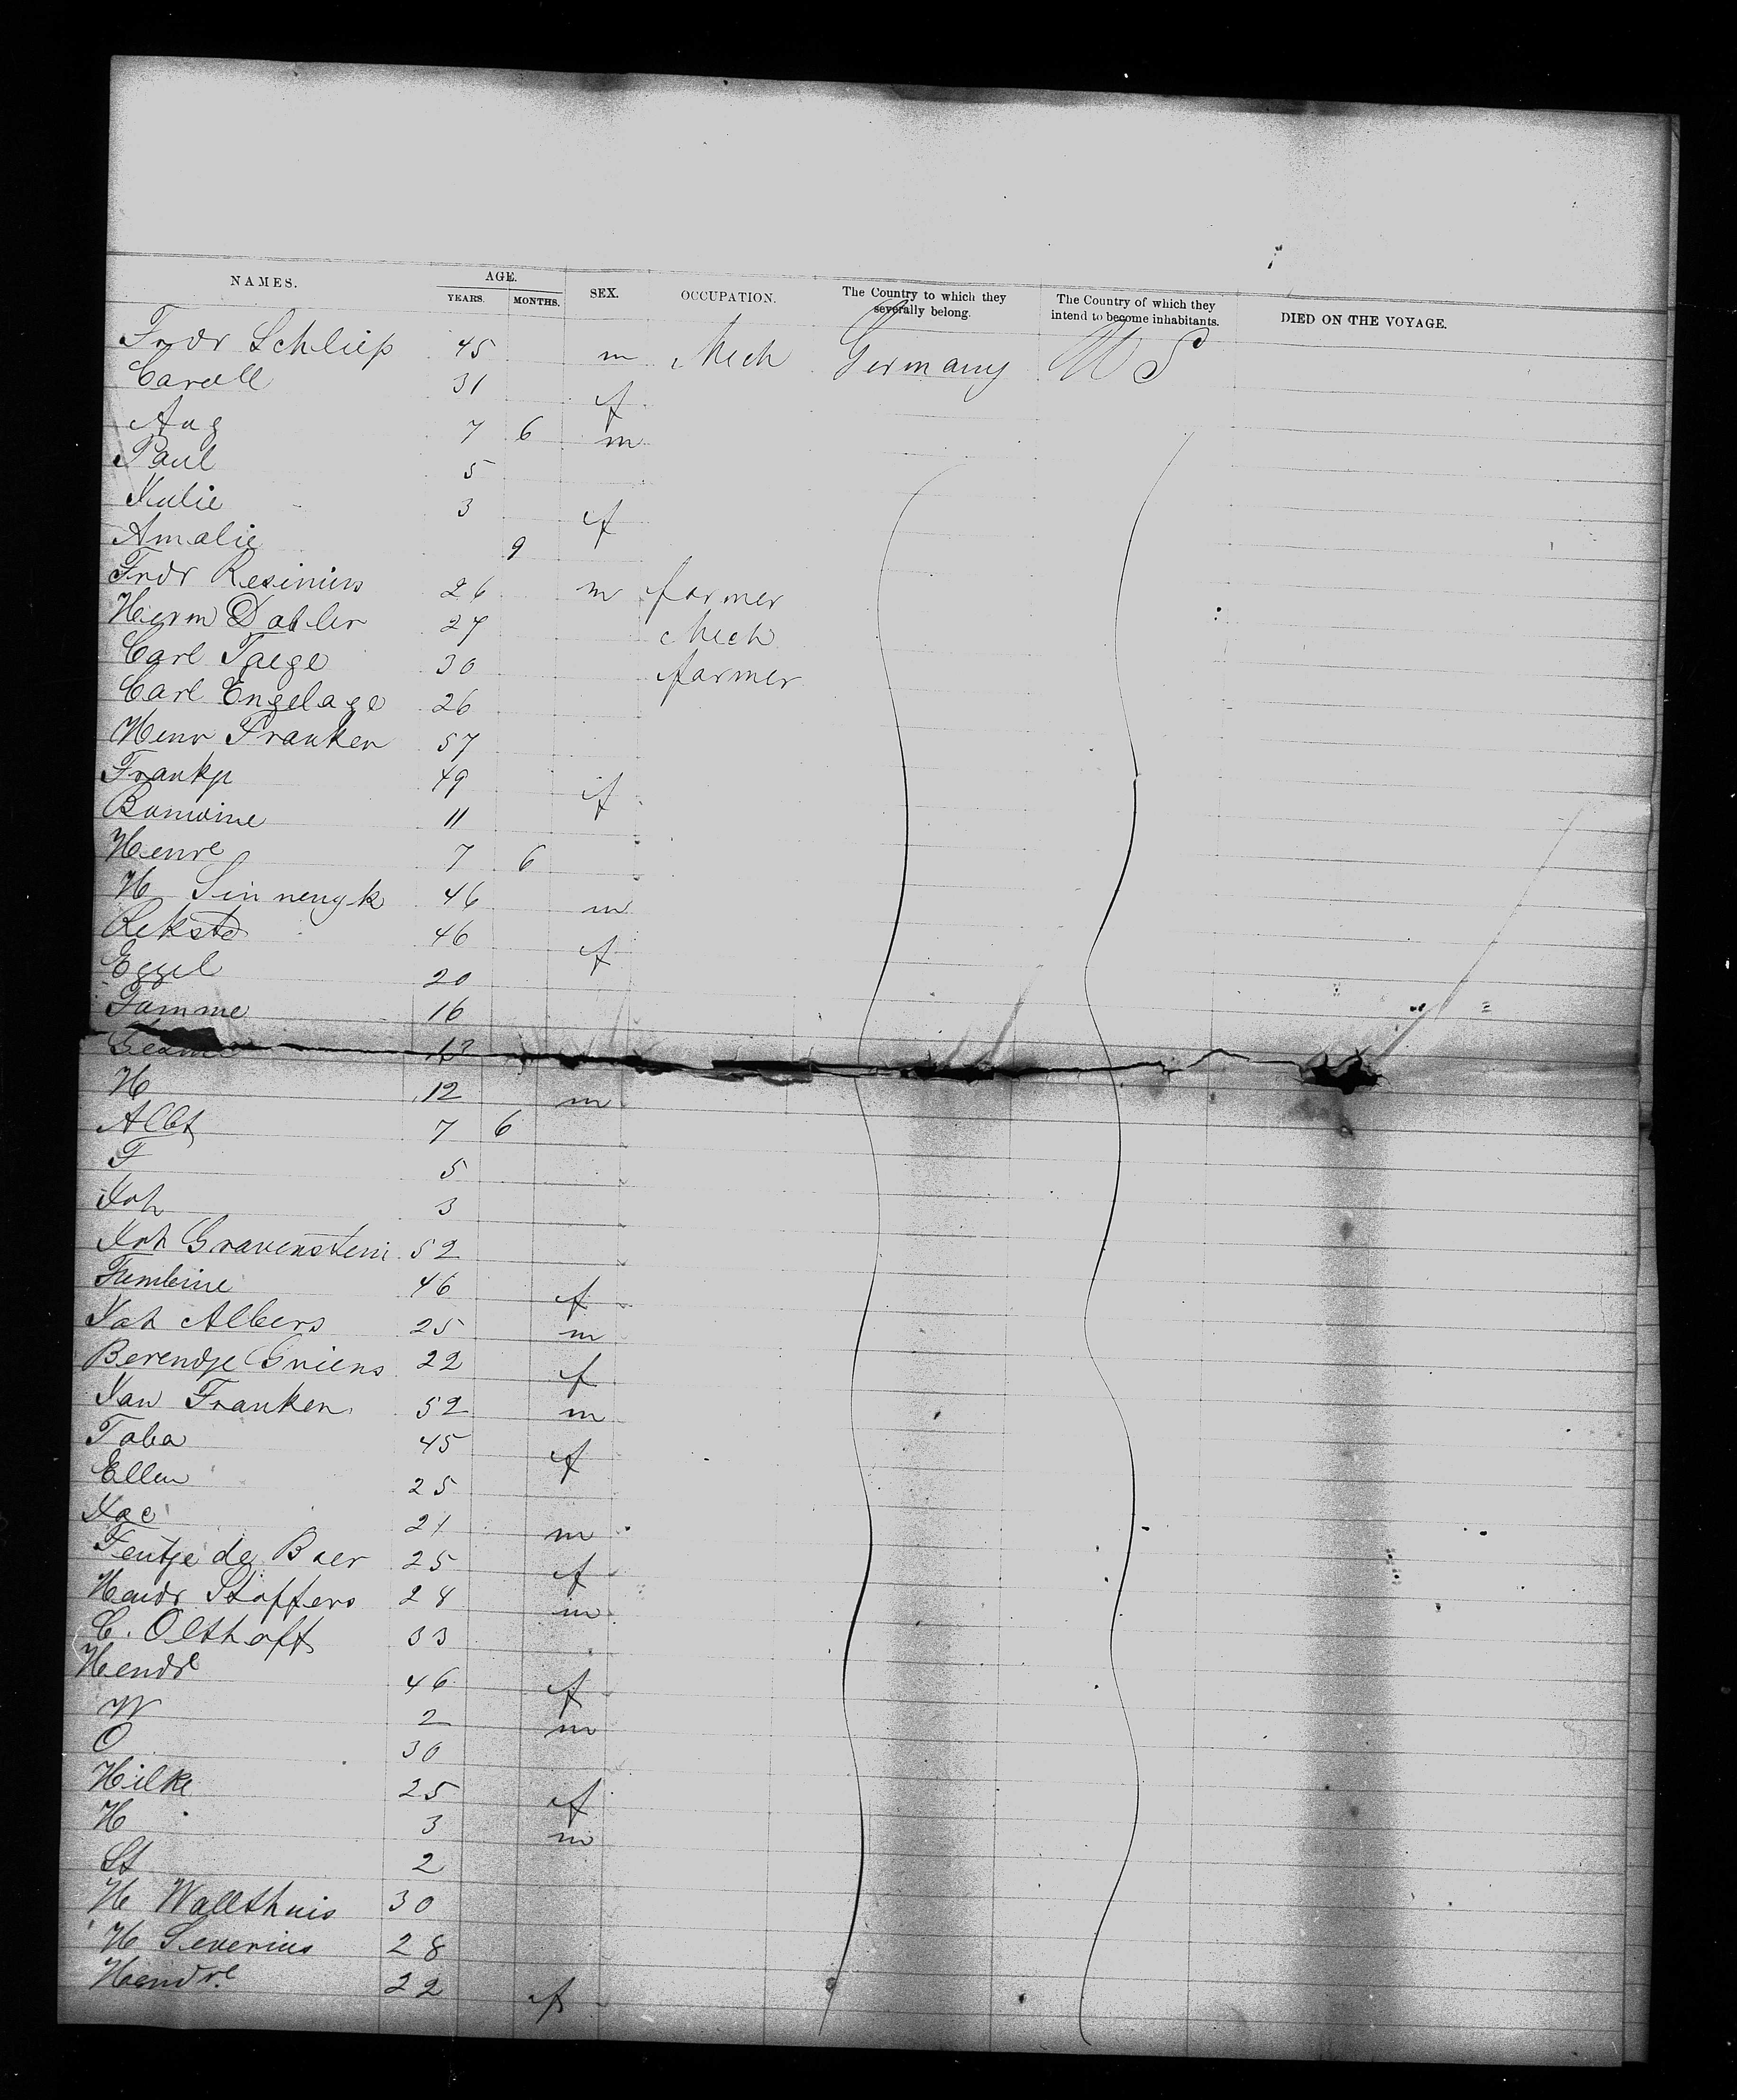 NAMES. AGE. SEX. OCCUPATION. The Country to which they severally belong. The Country of which they intend to become inhabitants. DIED ON THE VOYAGE.
YEARS. MONTHS.
Fredr Schliep 45 m Mech Germany U S
Caroll 31 f
Aug 7 6 m
Paul 5
Julie 3 f
Amalie 9
Fredr Resinius 26 m farmer
Herm Dabler 27 Mech
Carl Taege 30 farmer
Carl Engelage 26
Henr Franken 57
Frankje 49 f
11
Henre 7 6
H 46 m
46 f
Eggel 20
Tamme 16

H 12 m
Albt 7 6
F 5
Joh 3
Joh Gravenstein 52
46 f
Joh Albers 25 m
Berendje Griens 22 f
Jan Franken 52 m
Taba 45 f
Ellen 25
Jac 21 m
Fentje de Boer 25 f
Hendr Stoffers 28 m
C. Olthoff 33
Hendre 46 f
W 2 m
O 30
Hilke 25 f
H 3 m
St 2
H Wallthuis 30
H Severius 28
Hendre 22 f